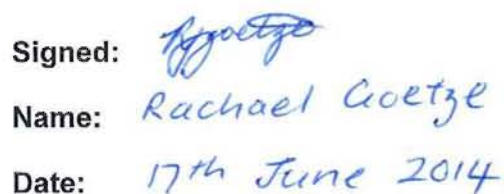 Signed:
Name: Rachael Goetze
Date: 17th June 2014